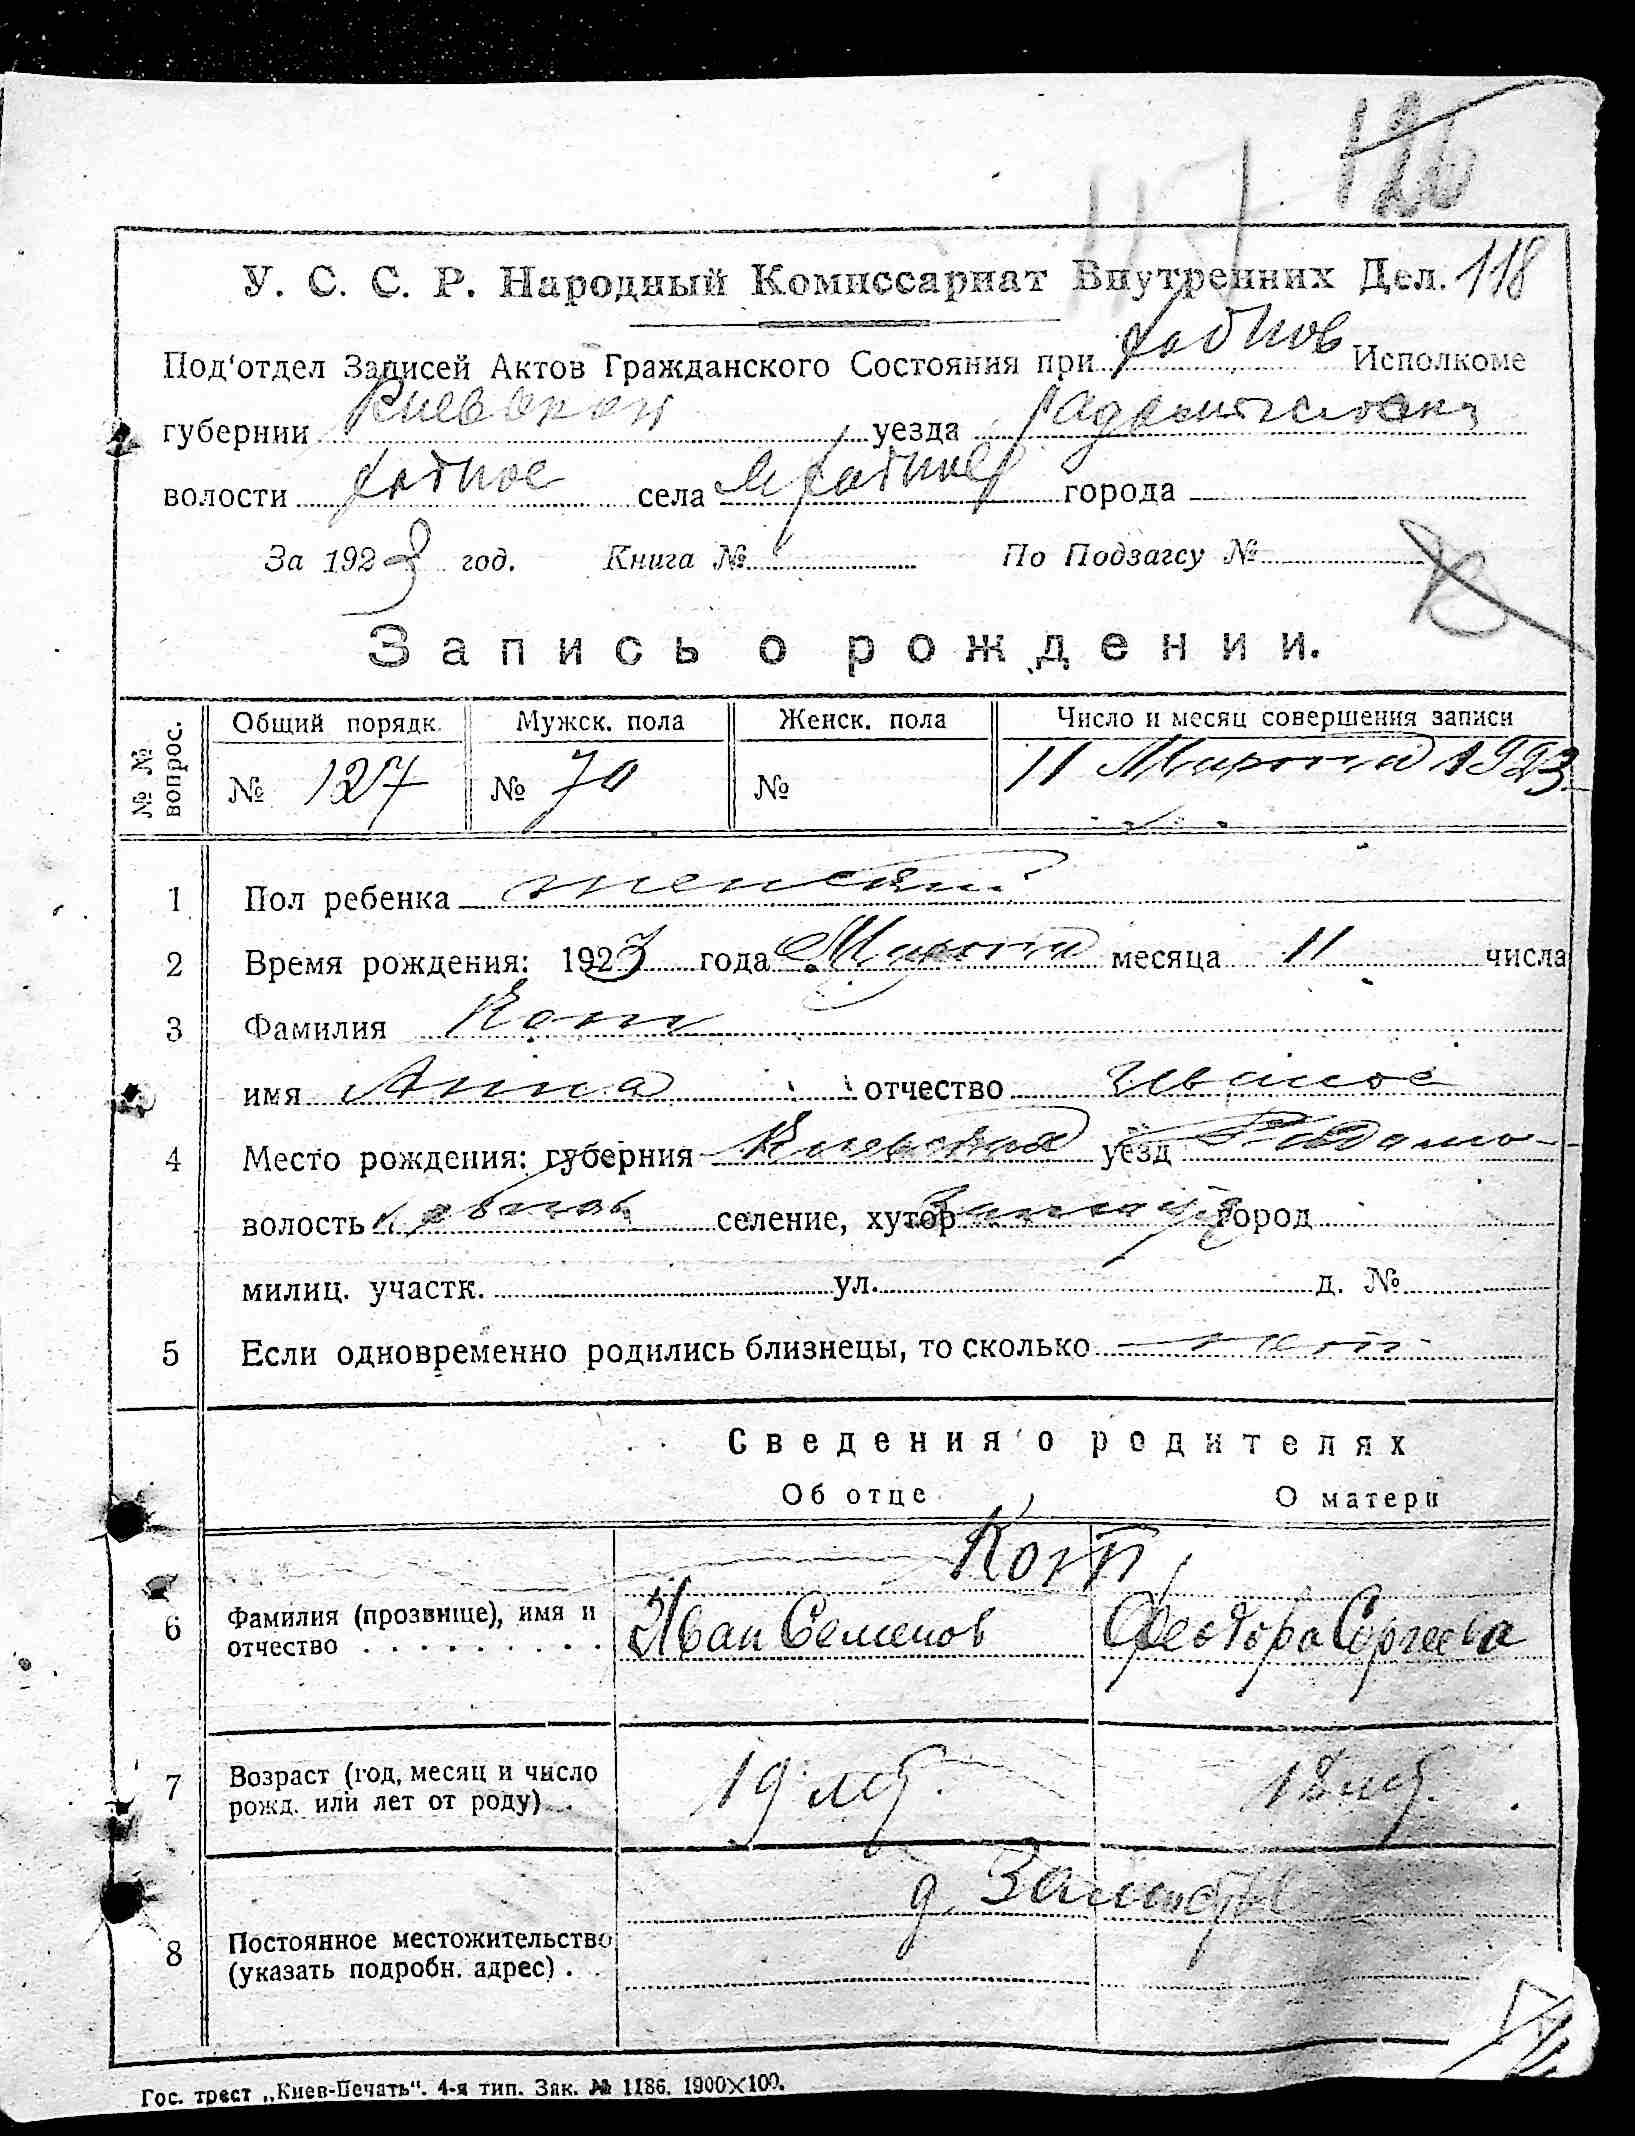 126
117
У. С. С. Р. Народный Комиссариат Внутренних Дел. 118
Под'отдел Записей Актов Гражданского Состояния при Хабнов Исполкоме
губернии Киевской уезда
волости Хабное села м Хабное города
За 1923 год. Книга № По Подзагсу №
Запись о рождении.
№ № вопрос. Общий порядк. Мужск. пола Женск. пола Число и месяц совершения записи
№ 127 № 70 № 11 Марта 1923
1 Пол ребенка женский
2 Время рождения: 1923 года Марта месяца 11 числа
3 Фамилия Кот
имя Анна отчество Иванов
4 Место рождения: губерния Киевская уезд Радомы-
волость Хабнов селение, хутор город
милиц. участк. ул. д. №
5 Если одновременно родились близнецы, то сколько
Сведения о родителях
Об отце О матери
Кот
6 Фамилия (прозвище), имя и отчество . . . . . . . . . . Иван Семенов Феодора Сергеева
7 Возраст (год, месяц и число рожд. или лет от роду) . . 19 лет. 18 лет.
д.
8 Постоянное местожительство (указать подробн. адрес) . .
Гос. трест „Киев-Печать". 4-я тип. Зак. № 1186. 1900×100.